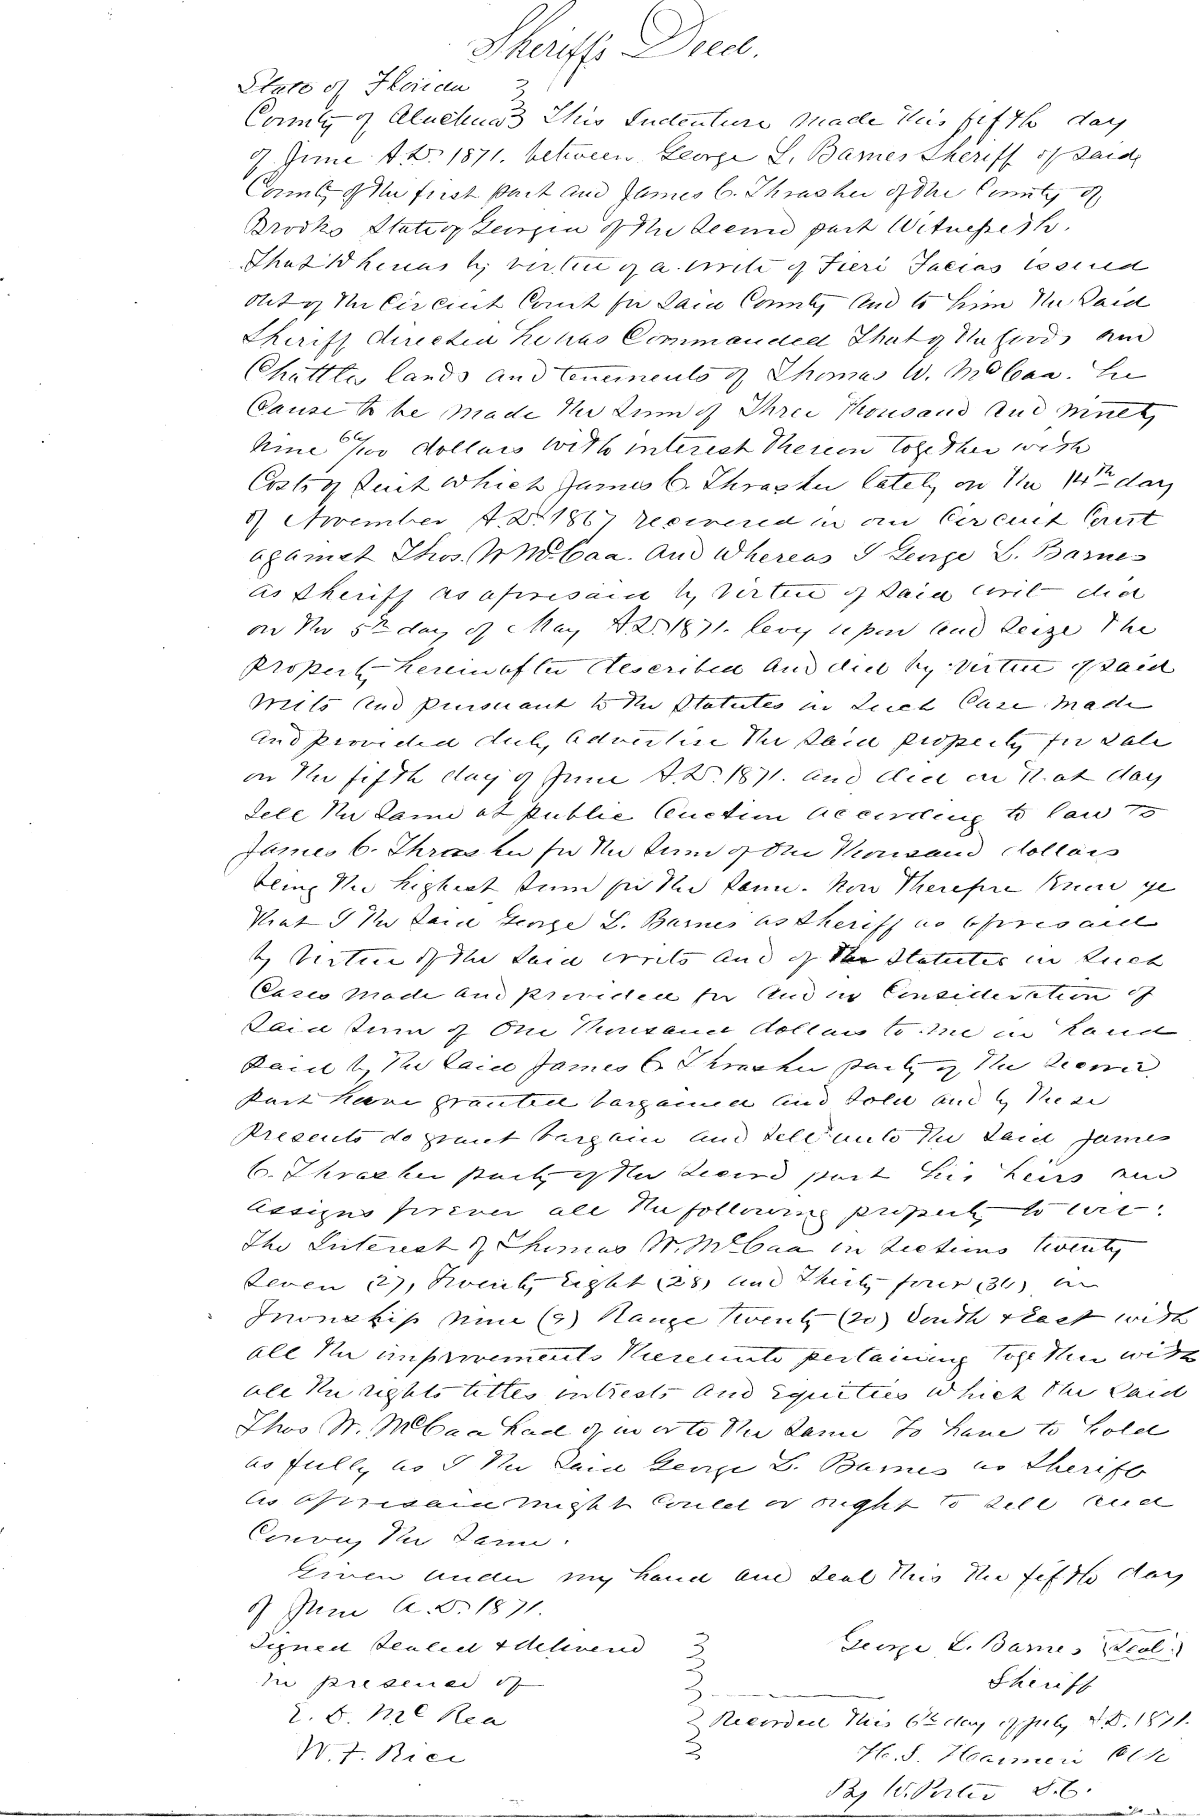 Sheriff's Deed.
State of Florida }
County of Alachua } This Indenture made this fifth day
of June A.D. 1871. between George L. Barnes Sheriff of said
County of the first part and James C. Thrasher of the County of
Brooks State of Georgia of the second part Witnesseth.
That Whereas by virtue of a writ of Fieri Facias issued
out of the Circuit Court for said County and to him the said
Sheriff directed he was Commanded That of the goods and
Chattles lands and tenements of Thomas W. McCaa. he
Cause to be made the sum of Three Thousand and ninety
nine 66/100 dollars with interest thereon together with
Costs of suit which James C. Thrasher lately on the 14th day
of November A.D. 1867 recovered in our Circuit Court
against Thos. W McCaa. and whereas I George L. Barnes
as Sheriff as aforesaid by virtue of said writ did
on the 5th day of May A.D. 1871. levy upon and seize the
property hereinafter described and did by virtue of said
writs and pursuant to the statutes in such Case made
and provided duly advertise the said property for sale
on the fifth day of June A.D. 1871. and did on that day
sell the same at public auction according to law to
James C. Thrasher for the sum of one thousand dollars
being the highest sum for the same. Now Therefore Know ye
that I the said George L. Barnes as Sheriff as aforesaid
by virtue of the said writs and of the statutes in such
Cases made and provided for and in Consideration of
said sum of One thousand dollars to me in hand
paid by the said James C. Thrasher party of the second
part have granted bargained and sold and by these
presents do grant bargain and sell unto the said James
C. Thrasher party of the second part his heirs and
assigns forever all the following property to wit:
The Interest of Thomas W. McCaa in sections twenty
seven (27), Twenty Eight (28) and Thirty four (34) in
Township nine (9) Range twenty (20) South & East with
all the improvements thereunto pertaining together with
all the rights titles intrests and equities which the said
Thos W. McCaa had of in or to the same To have to hold
as fully as I the said George L. Barnes as Sheriff
as aforesaid might could or ought to sell and
Convey the same.
Given under my hand and seal this the fifth day
of June A.D. 1871.
Signed sealed & delivered } George L. Barnes (Seal)
in presence of } Sheriff
E. D. McRea } Recorded this 6th day of July A.D. 1871.
W. F. Rice } Clk
By W. Porter D.C.